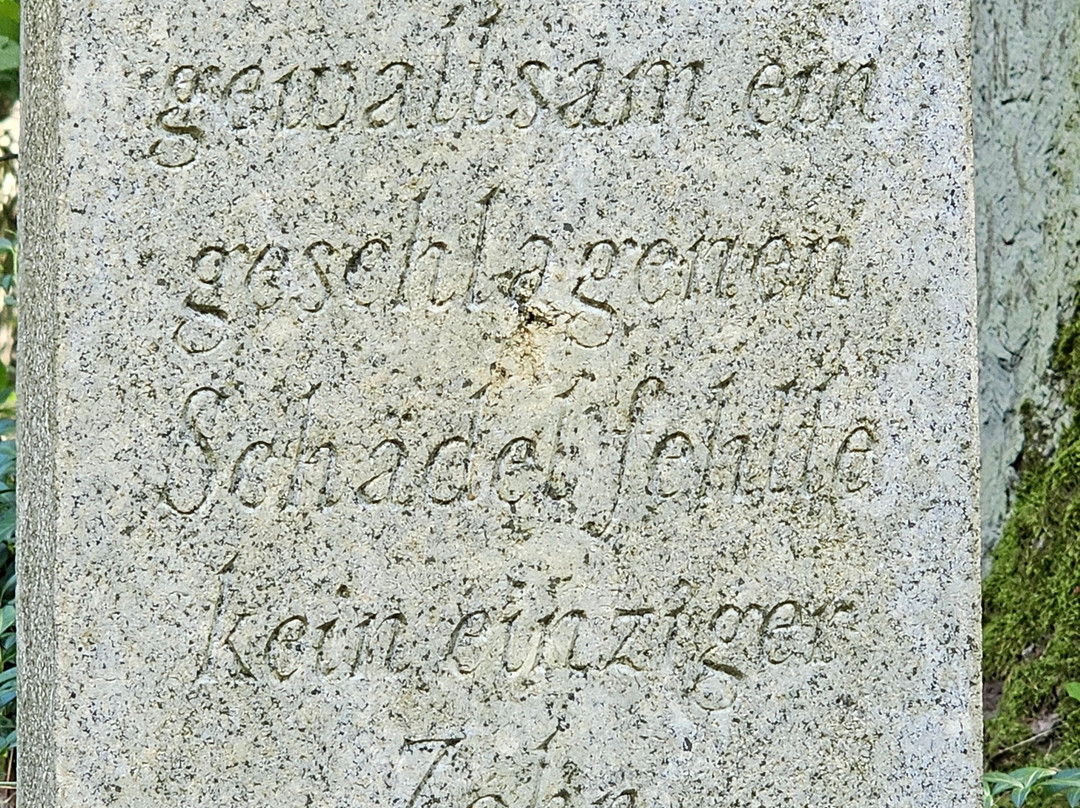 gewaltsam ein
geschlagenen
Schädel fehlte
kein einziger
Zahn